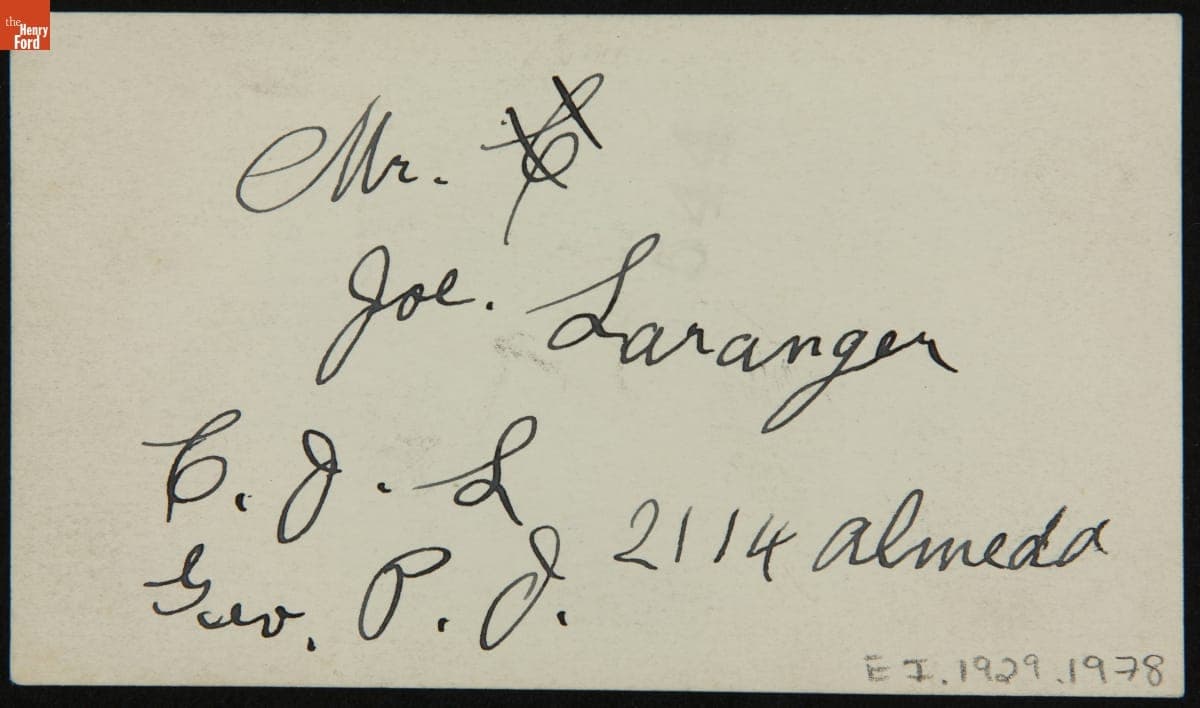 the Henry Ford
Mr.
Joe. Laranger
C. J. L
Geo. P. J. 2114 Almeda
E I. 1929.1978